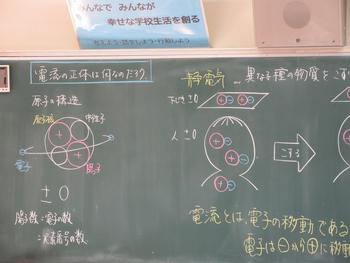 みんなで みんなが
幸せな学校生活を創る
電流の正体は何なのだろう
原子の構造
原子核
中性子
電子
陽子
±0
陽子の数=電子の数
=元素番号の数
静電気 … 異なる種の物質をこす
下じき±0
人±0
こする
電流とは、電子の移動である
電子は⊖から⊕に移動